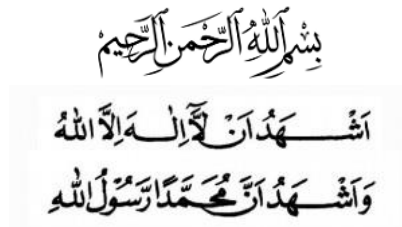 بِسْمِ اللّٰهِ الرَّحْمٰنِ الرَّحِيْمِ
اَشْهَدُ اَنْ لَّآ اِلٰهَ اِلَّا اللّٰهُ
وَاَشْهَدُ اَنَّ مُحَمَّدًا رَّسُوْلُ اللّٰهِ